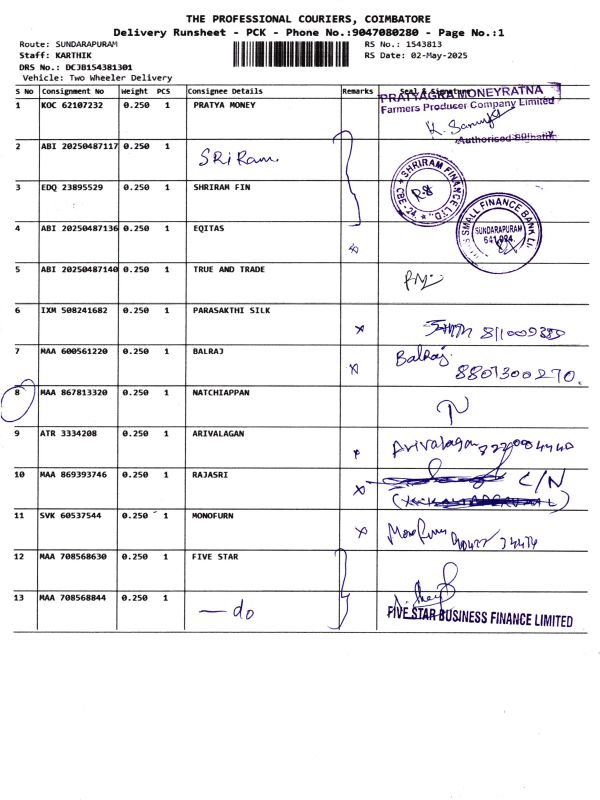 THE PROFESSIONAL COURIERS, COIMBATORE
Delivery Runsheet - PCK - Phone No.:9047080280 - Page No.:1
Route: SUNDARAPURAM
RS No.: 1543813
Staff: KARTHIK
RS Date: 02-May-2025
DRS No.: DCJB1543813O1
Vehicle: Two Wheeler Delivery
S No Consignment No Weight PCS Consignee Details Remarks Seal & Signature
PRATYAGRA MONEYRATNA
1 KOC 62107232 0.250 1 PRATYA MONEY
Farmers Producer Company Limited
Authorised
2 ABI 20250487117 0.250 1 SRi Ram
3 EDQ 23895529 0.250 1 SHRIRAM FIN
SHRIRAM FINANCE LTD. CBE - 24.
4 ABI 20250487136 0.250 1 EQITAS
SMALL FINANCE BANK
SUNDARAPURAM
641 024.
5 ABI 20250487140 0.250 1 TRUE AND TRADE
6 IXM 508241682 0.250 1 PARASAKTHI SILK
7 MAA 600561220 0.250 1 BALRAJ Balraj
8807300270.
8 MAA 867813320 0.250 1 NATCHIAPPAN
9 ATR 3334208 0.250 1 ARIVALAGAN Arivalagan
10 MAA 869393746 0.250 1 RAJASRI C/N
11 SVK 60537544 0.250 1 MONOFURN
12 MAA 708568630 0.250 1 FIVE STAR
13 MAA 708568844 0.250 1 — do
FIVE STAR BUSINESS FINANCE LIMITED